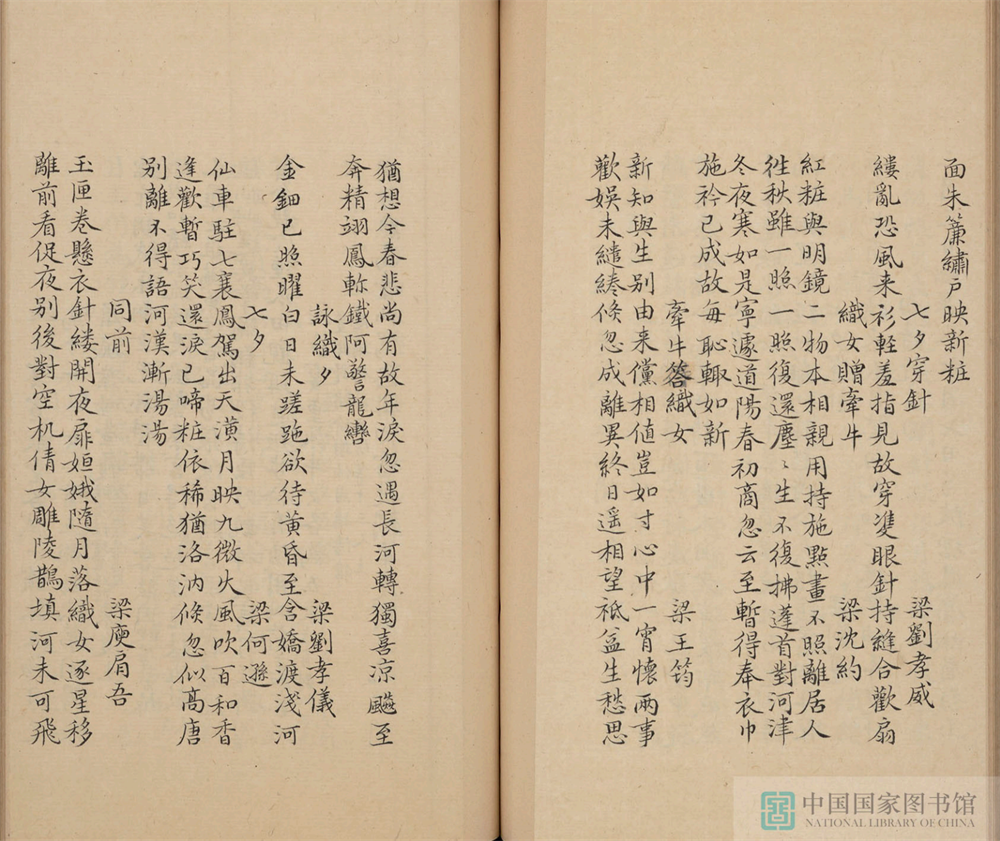 面朱簾繡戶映新粧
七夕穿針 梁劉孝威
縷亂恐風来衫輕羞指見故穿𨾏眼針持縫合歡扇
織女贈牽牛 梁沈約
紅粧與明鏡二物本相親用持施點畫不照離居人
徃秋雖一照一照復還塵〻生不復拂蓬首對河津
冬夜寒如是寧遽道陽春初商忽云至暫得奉衣巾
施衿已成故每恥輙如新
牽牛答織女 梁王筠
新知與生别由来儻相值豈如寸心中一宵懷兩事
歡娛未繾綣倐忽成離異終日遥相望祗益生愁思
猶想今春悲尚有故年淚忽遇長河轉獨喜凉飈至
奔精翊鳳軫鐵阿警龍轡
詠織夕 梁劉孝儀
金鈿已照曜白日未蹉跎欲待黄昏至含嬌渡淺河
七夕 梁何遜
仙車駐七襄鳳駕出天潢月映九微火風吹百和香
逢歡暫巧笑還淚已啼粧依稀猶洛汭倐忽似髙唐
别離不得語河漢漸湯湯
同前 梁庾肩吾
玉匣卷懸衣針縷開夜扉姮娥隨月落織女逐星移
離前看促夜别後對空机倩女雕陵鵲填河未可飛
中国国家图书馆
NATIONAL LIBRARY OF CHINA